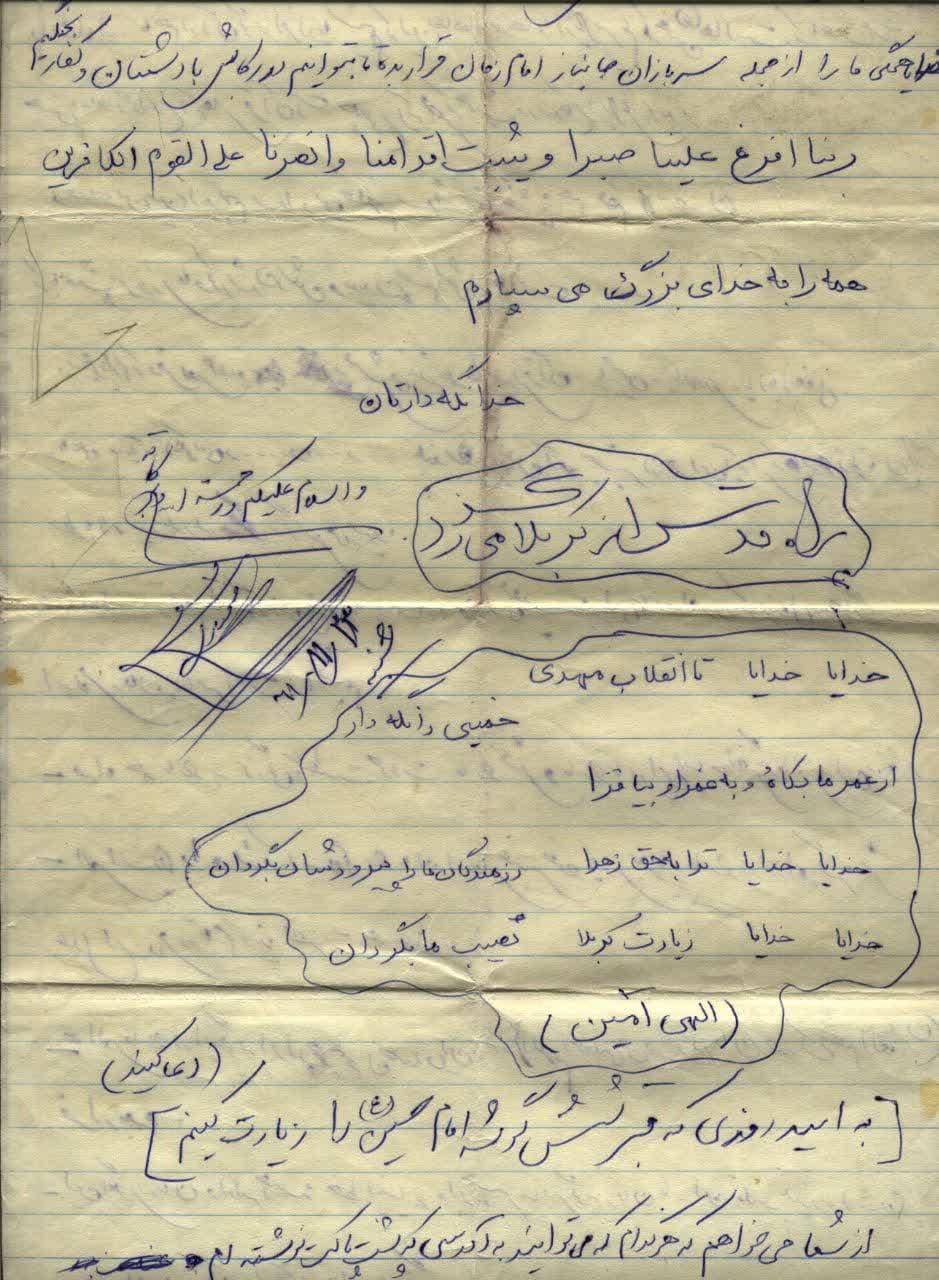 خدایا همگی ما را از جمله سربازان جانباز امام زمان قرار بده تا بتوانیم در رکابش با دشمنان و کفار بجنگیم
ربنا افرغ علینا صبرا و یثبت اقدامنا وانصرنا علی القوم الکافرین
همه را به خدای بزرگ می سپارم
خدانگه دارتان
والسلام علیکم و رحمته الله و برکاته
راه قدس از کربلا می گذرد
خدایا خدایا تا انقلاب مهدی
خمینی را نگه دار
از عمر ما بکاهُ و به عمر او بیافزا
خدایا خدایا ترا به حق زهرا رزمندگان ما را پیروزشان بگردان
خدایا خدایا زیارت کربلا نصیب ما بگردان
(الهی آمین)
(دعا کنید)
[به امید روزی که قبر شش گوشه امام حسین (ع) را زیارت کنیم]
از شما می خواهم که هر کدام که می توانید به آدرسی که پشت پاکت نوشته ام